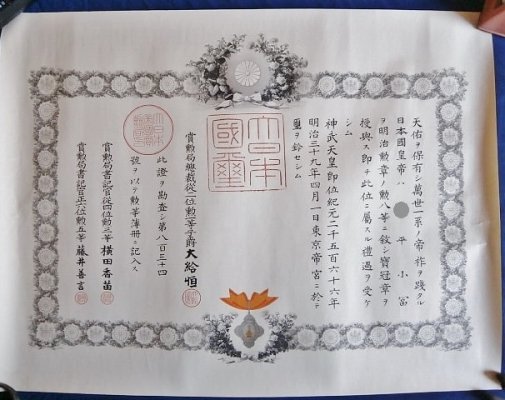 天佑ヲ保有シ萬世一系ノ帝祚ヲ踐タル
日本國皇帝ハ 平小冨
ヲ明治勲章ノ勲八等ニ敍シ寶冠章ヲ
授與ス即チ此位ニ屬スル禮遇ヲ受ケ
シム
神武天皇即位紀元二千五百六十六年
明治三十九年四月一日東京帝宮ニ於テ
璽ヲ鈐セシム
大日本國璽
賞勲局總裁從二位勲一等子爵大給恒
此證ヲ勘査シ第八百三十四
號ヲ以テ勲等簿册ニ記入ス
賞勲局書記官從四位勲三等横田香苗
賞勲局書記官正六位勲五等藤井善言